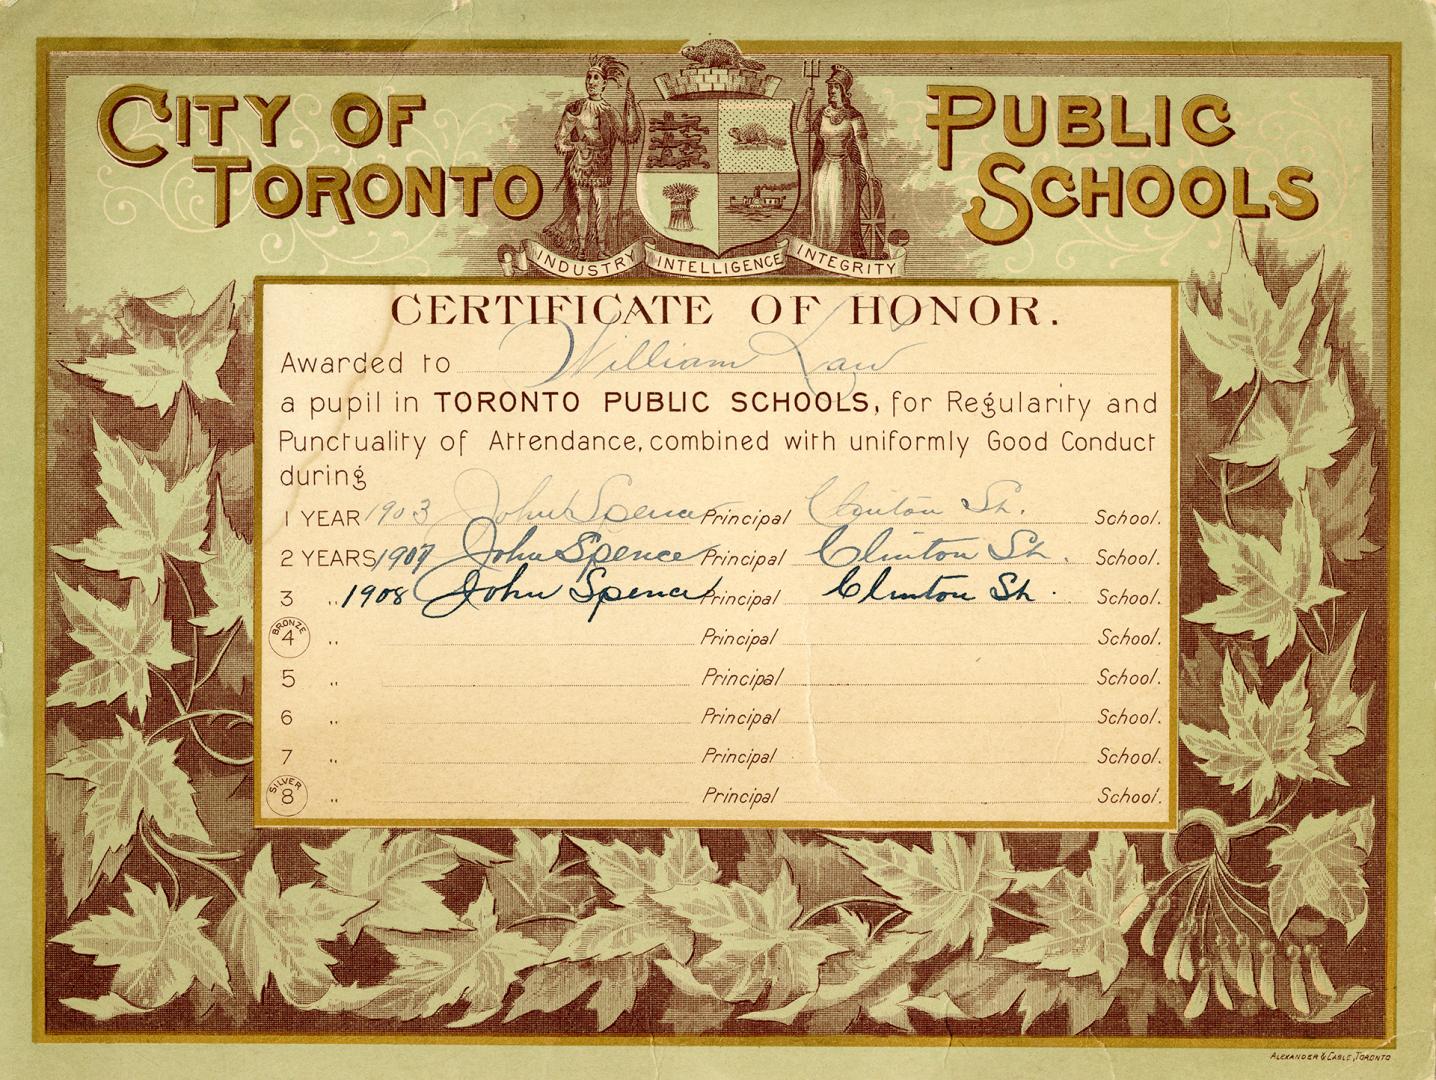 CITY OF TORONTO
PUBLIC SCHOOLS
INDUSTRY INTELLIGENCE INTEGRITY
CERTIFICATE OF HONOR.
Awarded to William Law
a pupil in TORONTO PUBLIC SCHOOLS, for Regularity and
Punctuality of Attendance, combined with uniformly Good Conduct
during
1 YEAR 1903 John Spence Principal Clinton St. School.
2 YEARS 1907 John Spence Principal Clinton St. School.
3 " 1908 John Spence Principal Clinton St. School.
BRONZE 4 " Principal School.
5 " Principal School.
6 " Principal School.
7 " Principal School.
SILVER 8 " Principal School.
ALEXANDER & CABLE, TORONTO